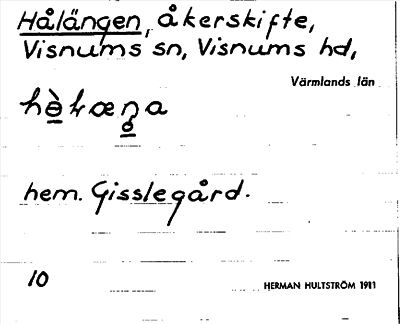 Hålängen, åkerskifte,
Visnums sn, Visnums hd,
Värmlands län
hem. Gisslegård.
10
HERMAN HULTSTRÖM 1911